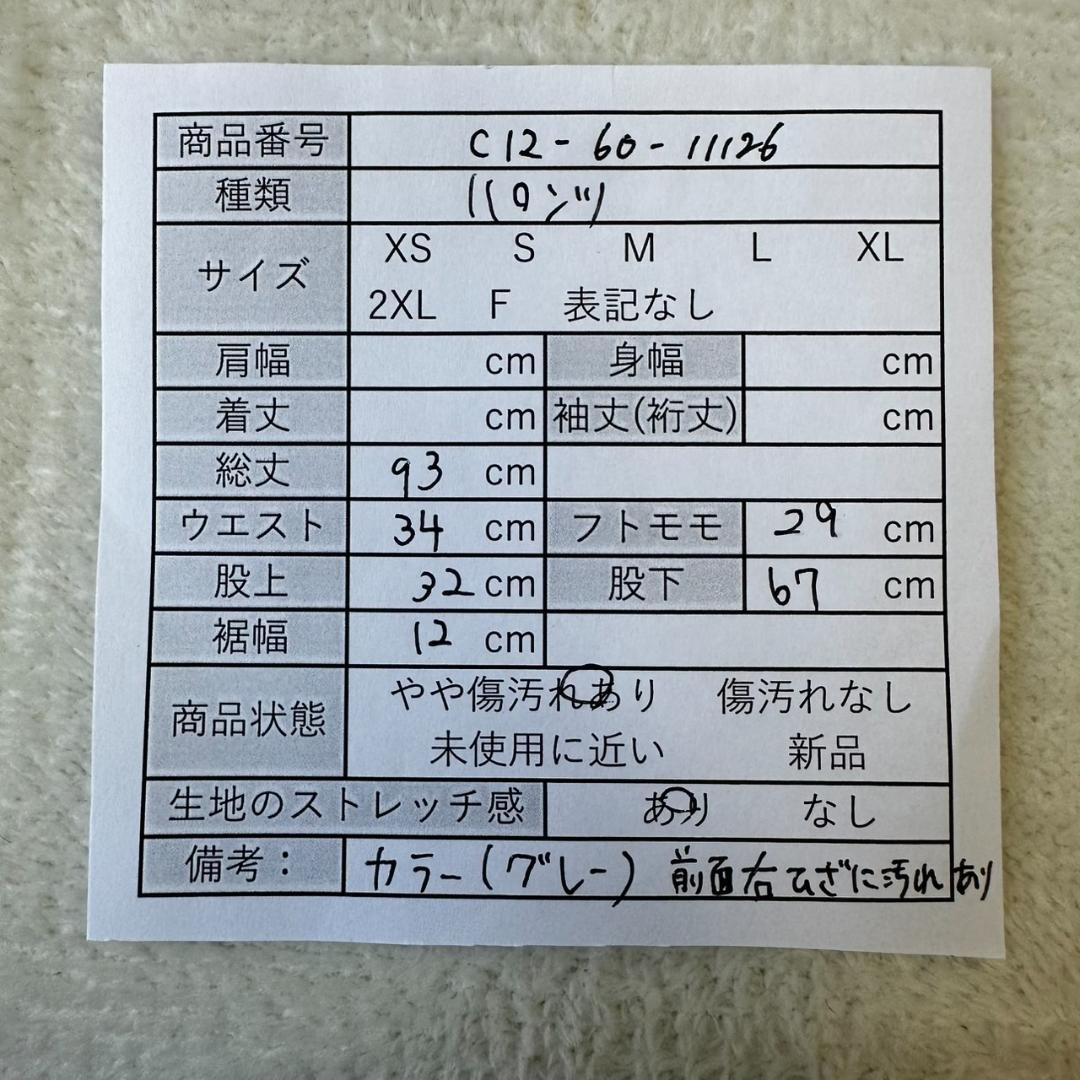 商品番号 C12-60-11126
種類 パンツ
サイズ XS S M L XL
2XL F 表記なし
肩幅 cm 身幅 cm
着丈 cm 袖丈(裄丈) cm
総丈 93 cm
ウエスト 34 cm フトモモ 29 cm
股上 32 cm 股下 67 cm
裾幅 12 cm
商品状態 やや傷汚れあり 傷汚れなし
未使用に近い 新品
生地のストレッチ感 あり なし
備考： カラー(グレー) 前面右ひざに汚れあり